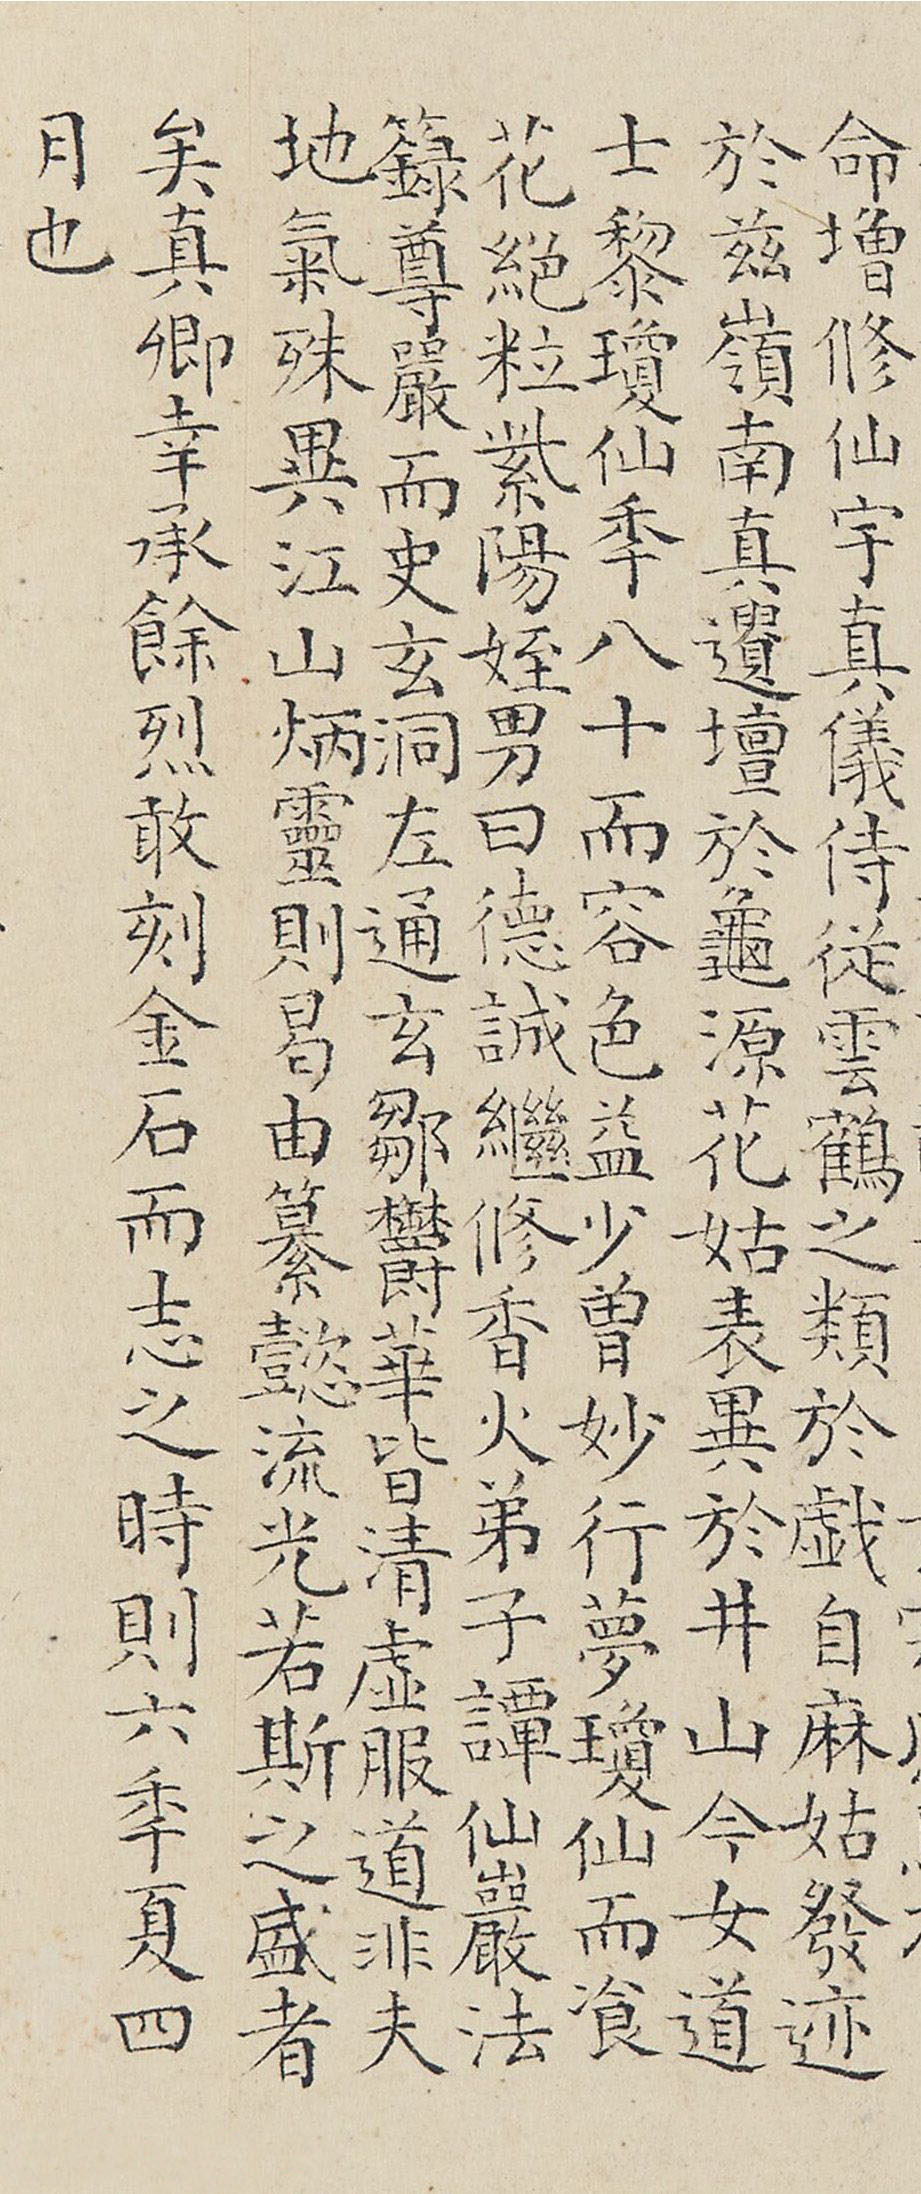 命增修仙宇真儀侍從雲鶴之類於戲自麻姑發迹
於茲嶺南真遺壇於龜源花姑表異於井山今女道
士黎瓊仙年八十而容色益少曾妙行夢瓊仙而飡
花絕粒紫陽姪男曰德誠繼修香火弟子譚仙巖法
籙尊嚴而史玄洞左通玄鄒欝華皆清虛服道非夫
地氣殊異江山炳靈則曷由纂懿流光若斯之盛者
矣真卿幸承餘烈敢刻金石而志之時則六年夏四
月也